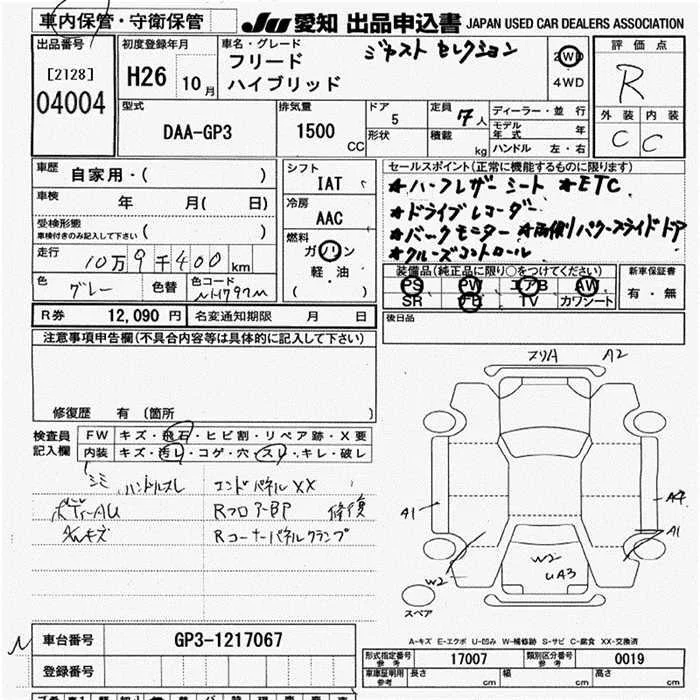 車内保管・守衛保管
JU 愛知 出品申込書 JAPAN USED CAR DEALERS ASSOCIATION
出品番号
[2128]
04004
初度登録年月
H26 10月
車名・グレード
フリード ジャスト セレクション
ハイブリッド
2WD
4WD
評価点
R
外装 内装
C C
型式
DAA-GP3
排気量
1500 CC
ドア
5
形状
定員 7人
積載 kg
ディーラー・並行
モデル年式 年
ハンドル 左・右
車歴
自家用・( )
車検
年 月( 日)
受検形態
車検付きのみ記入して下さい ( )
走行
10万9千400km
色
グレー
色替
色コード
NH797M
シフト
IAT
冷房
AAC
燃料
ガソリン
軽・油
( )
セールスポイント(正常に機能するものに限ります)
★ハーフレザーシート ★ETC
★ドライブレコーダー
★バックモニター ★両側パワースライドドア
★クルーズコントロール
装備品(純正品に限り○をつけてください)
PS PW エアB AW
SR TV カワシート
新車保証書
有・無
後日品
R券 12,090円 名変通知期限 月 日
注意事項申告欄(不具合内容等は具体的に記入して下さい)
修復歴 有 (箇所 )
検査員記入欄
FW キズ・飛石・ヒビ割・リペア跡・X要
内装 キズ・汚レ・コゲ・穴・スレ・キレ・破レ
シミ ハンドルスレ
エンドパネルXX
RフロアーBP 修復
Rコーナーパネルクランプ
A2
A1
A4
A1
W2
W2
UA3
スペア
A-キズ E-エクボ U-凹み W-補修跡 S-サビ C-腐食 XX-交換済
車台番号 GP3-1217067
登録番号
形式指定番号 参考 17007 類別区分番号 参考 0019
車庫証明用 参考 長さ cm 幅 cm 高さ cm